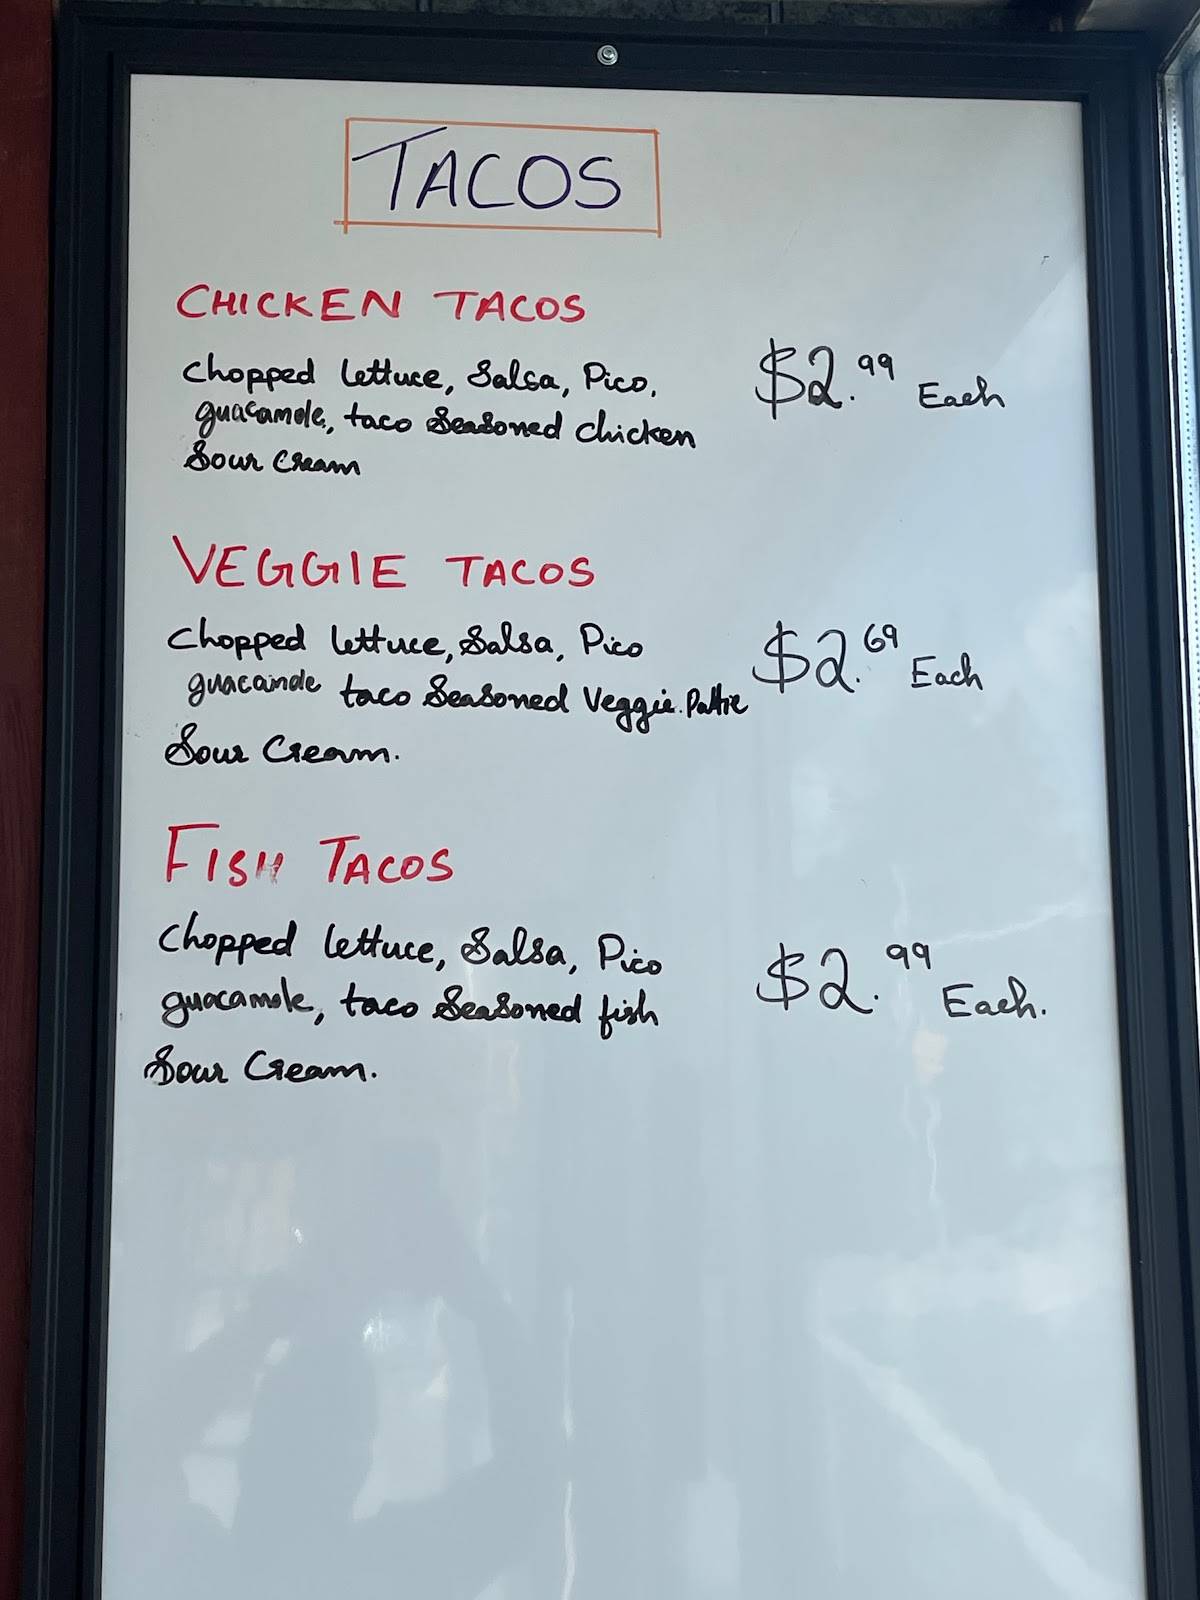 TACOS
CHICKEN TACOS
Chopped lettuce, Salsa, Pico,
guacamole, taco Seasoned chicken
Sour Cream
$2.99 Each
VEGGIE TACOS
Chopped lettuce, Salsa, Pico
guacamole taco Seasoned Veggie. Pattie
Sour Cream.
$2.69 Each
FISH TACOS
Chopped lettuce, Salsa, Pico
guacamole, taco Seasoned fish
Sour Cream.
$2.99 Each.